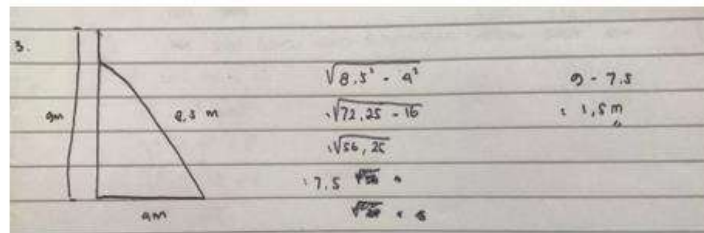 3.
9m
8,5 m
4m
√8.5² - 4²
: √72,25 - 16
: √56,25
: 7.5
9 - 7.5
: 1,5 m